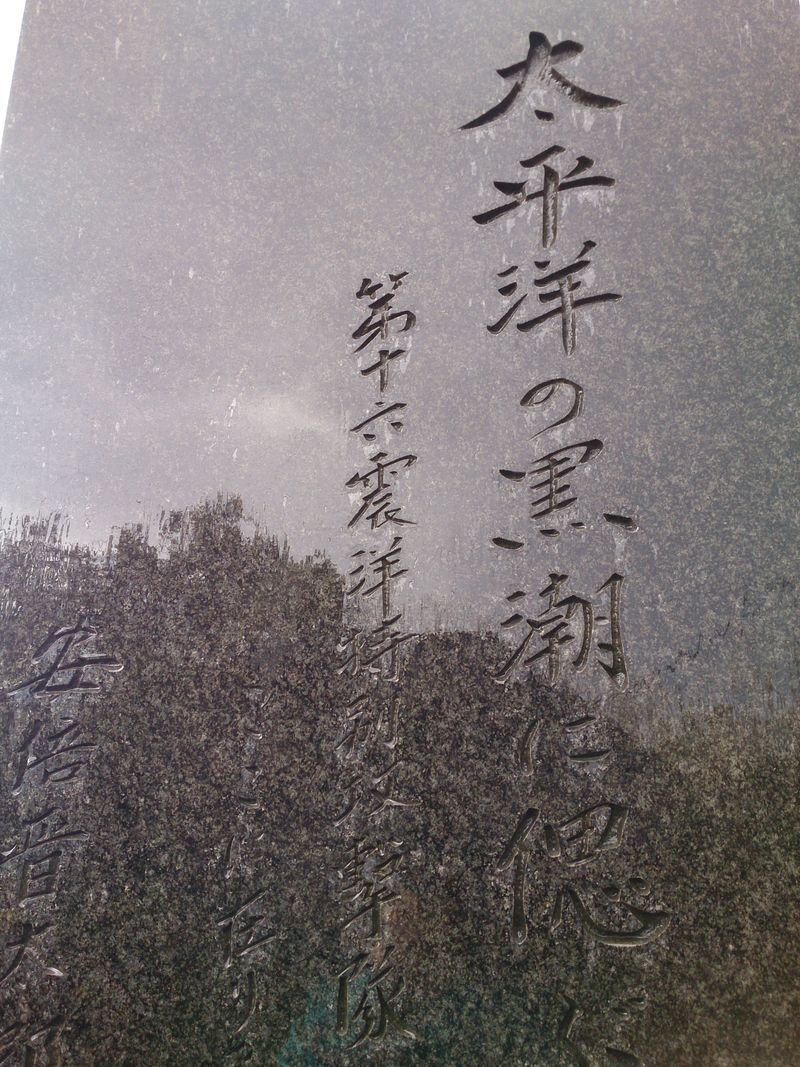 太平洋の黒潮に偲
第十六震洋特別攻撃隊
ここに在り
安倍晋太郎